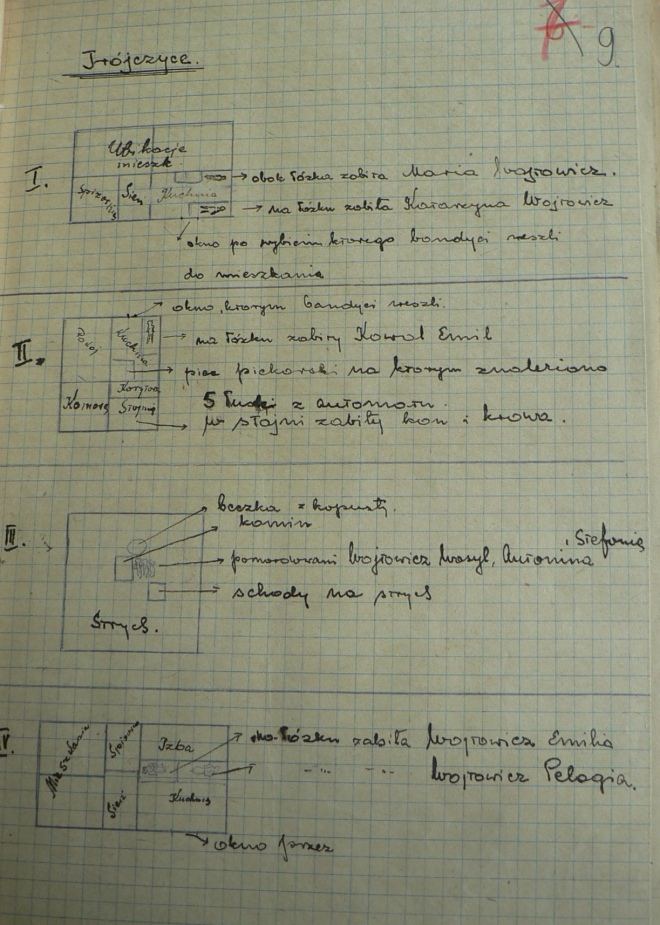 6 9
Trójczyce.
I.
Ubikacje
mieszk.
→ obok łóżka zabita Maria Wojtowicz.
Spiżarka Sień Kuchnia
→ na łóżku zabita Katarzyna Wojtowicz
okno po wybiciu którego bandyci weszli
do mieszkania
okno, którym bandyci weszli.
II.
Pokój Kuchnia → na łóżku zabity Kowal Emil
→ piec piekarski na którym znaleziono
Komora Korytarz 5 łusek z automatu.
Stajnia → w stajni zabity koń i krowa.
III.
beczka z kapustą.
komin
, Stefania
→ pomordowani Wojtowicz Wasyl, Antonina
→ schody na strych
Strych.
IV
Mieszkanie Spiżarnia Izba → na łóżku zabita Wojtowicz Emilia
→ - "- - "- Wojtowicz Pelagia.
Sień Kuchnia
→ okno przez